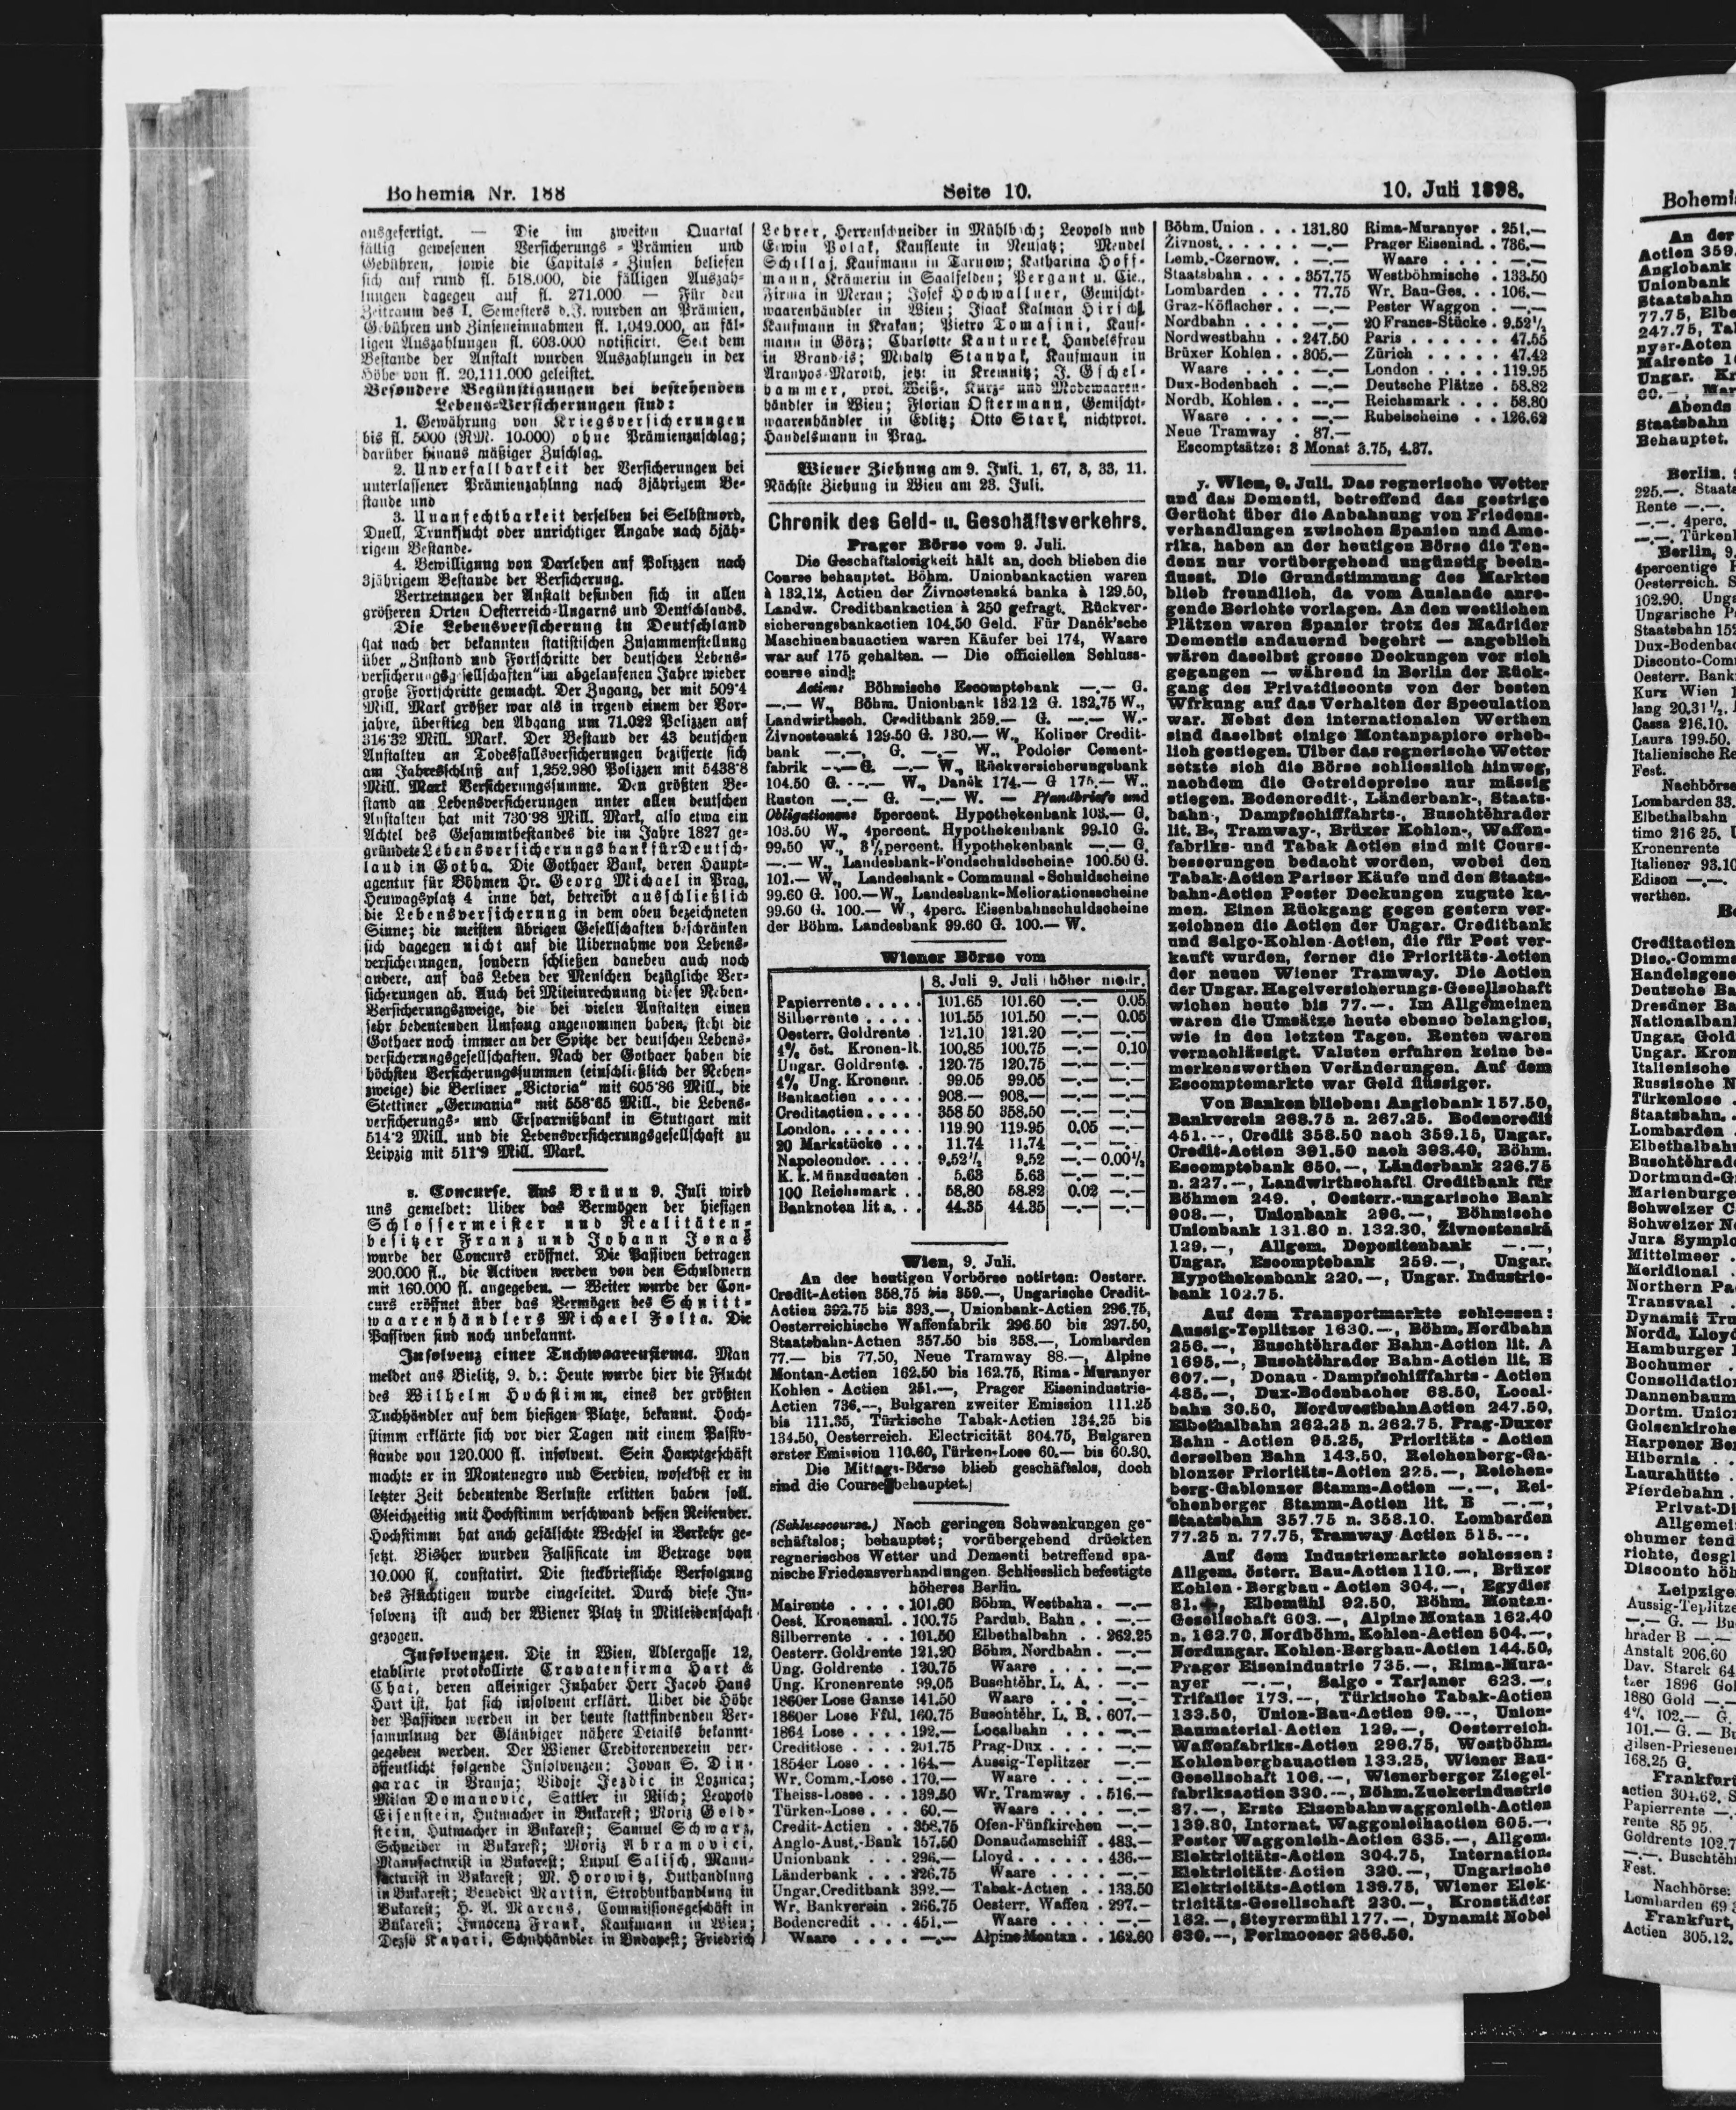 Bohemia Nr. 188
Seite 10.
10. Juli 1898.
ausgefertigt. — Die im zweiten Quartal
fällig gewesenen Versicherungs-Prämien und
Gebühren, sowie die Capitals-Zinsen beliefen
sich auf rund fl. 518.000, die fälligen Auszah-
lungen dagegen auf fl. 271.000 — Für den
Zeitraum des I. Semesters d. J. wurden an Prämien,
Gebühren und Zinseneinnahmen fl. 1,049.000, an fäl-
ligen Auszahlungen fl. 603.000 notificirt. Seit dem
Bestande der Anstalt wurden Auszahlungen in der
Höhe von fl. 20,111.000 geleistet.
Besondere Begünstigungen bei bestehenden
Lebens-Versicherungen sind:
1. Gewährung von Kriegsversicherungen
bis fl. 5000 (RM. 10.000) ohne Prämienzuschlag;
darüber hinaus mäßiger Zuschlag.
2. Unverfallbarkeit der Versicherungen bei
unterlassener Prämienzahlung nach 3jährigem Be-
stande und
3. Unanfechtbarkeit derselben bei Selbstmord,
Duell, Trunksucht oder unrichtiger Angabe nach 5jäh-
rigem Bestande.
4. Bewilligung von Darlehen auf Polizzen nach
3jährigem Bestande der Versicherung.
Vertretungen der Anstalt befinden sich in allen
größeren Orten Oesterreich-Ungarns und Deutschlands.
Die Lebensversicherung in Deutschland
hat nach der bekannten statistischen Zusammenstellung
über „Zustand und Fortschritte der deutschen Lebens-
versicherungsgesellschaften“ im abgelaufenen Jahre wieder
große Fortschritte gemacht. Der Zugang, der mit 509·4
Mill. Mark größer war als in irgend einem der Vor-
jahre, überstieg den Abgang um 71.022 Polizzen auf
316·32 Mill. Mark. Der Bestand der 43 deutschen
Anstalten an Todesfallsversicherungen bezifferte sich
am Jahresschluß auf 1,252.980 Polizzen mit 5438·8
Mill. Mark Versicherungssumme. Den größten Be-
stand an Lebensversicherungen unter allen deutschen
Anstalten hat mit 730·98 Mill. Mark, also etwa ein
Achtel des Gesammtbestandes die im Jahre 1827 ge-
gründete Lebensversicherungsbank für Deutsch-
land in Gotha. Die Gothaer Bank, deren Haupt-
agentur für Böhmen Hr. Georg Michael in Prag,
Heuwagsplatz 4 inne hat, betreibt ausschließlich
die Lebensversicherung in dem oben bezeichneten
Sinne; die meisten übrigen Gesellschaften beschränken
sich dagegen nicht auf die Uibernahme von Lebens-
versicherungen, sondern schließen daneben auch noch
andere, auf das Leben der Menschen bezügliche Ver-
sicherungen ab. Auch bei Miteinrechnung dieser Neben-
Versicherungszweige, die bei vielen Anstalten einen
sehr bedeutenden Umfang angenommen haben, steht die
Gothaer noch immer an der Spitze der deutschen Lebens-
versicherungsgesellschaften. Nach der Gothaer haben die
höchsten Versicherungssummen (einschließlich der Neben-
zweige) die Berliner „Victoria“ mit 605·86 Mill., die
Stettiner „Germania“ mit 558·65 Mill., die Lebens-
versicherungs- und Ersparnißbank in Stuttgart mit
514·2 Mill. und die Lebensversicherungsgesellschaft zu
Leipzig mit 511·9 Mill. Mark.
s. Concurse. Aus Brünn 9. Juli wird
uns gemeldet: Uiber das Vermögen der hiesigen
Schlossermeister und Realitäten-
besitzer Franz und Johann Jonas
wurde der Concurs eröffnet. Die Passiven betragen
200.000 fl., die Activen werden von den Schuldnern
mit 160.000 fl. angegeben. — Weiter wurde der Con-
curs eröffnet über das Vermögen des Schnitt-
waarenhändlers Michael Folta. Die
Passiven sind noch unbekannt.
Insolvenz einer Tuchwaarenfirma. Man
meldet aus Bielitz, 9. d.: Heute wurde hier die Flucht
des Wilhelm Hochstimm, eines der größten
Tuchhändler auf dem hiesigen Platze, bekannt. Hoch-
stimm erklärte sich vor vier Tagen mit einem Passiv-
stande von 120.000 fl. insolvent. Sein Hauptgeschäft
machte er in Montenegro und Serbien, woselbst er in
letzter Zeit bedeutende Verluste erlitten haben soll.
Gleichzeitig mit Hochstimm verschwand dessen Reisender.
Hochstimm hat auch gefälschte Wechsel in Verkehr ge-
setzt. Bisher wurden Falsificate im Betrage von
10.000 fl. constatirt. Die steckbriefliche Verfolgung
des Flüchtigen wurde eingeleitet. Durch diese In-
solvenz ist auch der Wiener Platz in Mitleidenschaft
gezogen.
Insolvenzen. Die in Wien, Adlergasse 12,
etablirte protokollirte Cravatenfirma Hart &
Chat, deren alleiniger Inhaber Herr Jacob Hans
Hart ist, hat sich insolvent erklärt. Uiber die Höhe
der Passiven werden in der heute stattfindenden Ver-
sammlung der Gläubiger nähere Details bekannt-
gegeben werden. Der Wiener Creditorenverein ver-
öffentlicht folgende Insolvenzen: Jovan S. Din-
garac in Vranja; Vidoje Jezdic in Loznica;
Milan Domanovic, Sattler in Nisch; Leopold
Eisenstein, Hutmacher in Bukarest; Moriz Gold-
stein, Hutmacher in Bukarest; Samuel Schwarz,
Schneider in Bukarest; Moriz Abramovici,
Manufacturist in Bukarest; Lupul Salisch, Manu-
facturist in Bukarest; M. Horowitz, Huthandlung
in Bukarest; Benedict Martin, Strohhuthandlung in
Bukarest; H. A. Marcus, Commissionsgeschäft in
Bukarest; Innocenz Frank, Kaufmann in Wien;
Dezsö Kavari, Schuhhändler in Budapest; Friedrich
Lehrer, Herrenschneider in Mühlbach; Leopold und
Erwin Polak, Kaufleute in Neusatz; Mendel
Schillaj, Kaufmann in Tarnow; Katharina Hoff-
mann, Krämerin in Saalfelden; Pergant u. Cie.,
Firma in Meran; Josef Hochwallner, Gemischt-
waarenhändler in Wien; Isaak Kalman Hirsch,
Kaufmann in Krakau; Pietro Tomasini, Kauf-
mann in Görz; Charlotte Kanturek, Handelsfrau
in Brandeis; Mihaly Stanyak, Kaufmann in
Aranyos-Maroth, jetzt in Kremnitz; J. Gschel-
hammer, prot. Weiß-, Kurz- und Modewaaren-
händler in Wien; Florian Ostermann, Gemischt-
waarenhändler in Edlitz; Otto Stark, nichtprot.
Handelsmann in Prag.
Wiener Ziehung am 9. Juli. 1, 67, 8, 33, 11.
Nächste Ziehung in Wien am 23. Juli.
Chronik des Geld- u. Geschäftsverkehrs.
Prager Börse vom 9. Juli.
Die Geschäftslosigkeit hält an, doch blieben die
Course behauptet. Böhm. Unionbankactien waren
à 132.12, Actien der Živnostenská banka à 129.50,
Landw. Creditbankactien à 250 gefragt. Rückver-
sicherungsbankactien 104.50 Geld. Für Daněk'sche
Maschinenbauactien waren Käufer bei 174, Waare
war auf 175 gehalten. — Die officiellen Schluss-
course sind:
Actien: Böhmische Escomptebank —.— G.
—.— W., Böhm. Unionbank 132.12 G. 132.75 W.,
Landwirthsch. Creditbank 259.— G. —.— W.-
Živnostenská 129.50 G. 130.— W., Koliner Credit-
bank —.—, G. —.— W., Podoler Cement-
fabrik —.— G. —.— W., Rückversicherungsbank
104.50 G. —.— W., Daněk 174.— G 175.— W.,
Ruston —.— G. —.— W. — Pfandbriefe und
Obligationen: 5percent. Hypothekenbank 103.— G.
103.50 W., 4percent. Hypothekenbank 99.10 G.
99.50 W., 3½percent. Hypothekenbank —.— G.
—.— W., Landesbank-Fondschuldscheine 100.50 G.
101.— W., Landesbank-Communal-Schuldscheine
99.60 G. 100.—W., Landesbank-Meliorationsscheine
99.60 G. 100.— W., 4perc. Eisenbahnschuldscheine
der Böhm. Landesbank 99.60 G. 100.— W.
Wiener Börse vom
8. Juli 9. Juli höher niedr.
Papierrente..... 101.65 101.60 —.— 0.05
Silberrente..... 101.55 101.50 —.— 0.05
Oesterr. Goldrente. 121.10 121.20 —.— —.—
4% öst. Kronen-R. 100.85 100.75 —.— 0.10
Ungar. Goldrente.. 120.75 120.75 —.— —.—
4% Ung. Kronenr. . 99.05 99.05 —.— —.—
Bankactien..... 908.— 908.— —.— —.—
Creditactien..... 358 50 358.50 —.— —.—
London........ 119.90 119.95 0.05 —.—
20 Markstücke... 11.74 11.74 —.— —.—
Napoleondor..... 9.52½ 9.52 —.— 0.00½
K. k. Münzducaten. 5.63 5.63 —.— —.—
100 Reichsmark.. 58.80 58.82 0.02 —.—
Banknoten lit a... 44.35 44.35 —.— —.—
Wien, 9. Juli.
An der heutigen Vorbörse notirten: Oesterr.
Credit-Actien 358.75 bis 359.—, Ungarische Credit-
Actien 392.75 bis 393.—, Unionbank-Actien 296.75,
Oesterreichische Waffenfabrik 296.50 bis 297.50,
Staatsbahn-Actien 357.50 bis 358.—, Lombarden
77.— bis 77.50, Neue Tramway 88.—, Alpine
Montan-Actien 162.50 bis 162.75, Rima-Muranyer
Kohlen-Actien 251.—, Prager Eisenindustrie-
Actien 736.—, Bulgaren zweiter Emission 111.25
bis 111.35, Türkische Tabak-Actien 134.25 bis
134.50, Oesterreich. Electricität 304.75, Bulgaren
erster Emission 110.60, Türken-Lose 60.— bis 60.30.
Die Mittags-Börse blieb geschäftslos, doch
sind die Course behauptet.
(Schlusscourse.) Nach geringen Schwankungen ge-
schäftslos; behauptet; vorübergehend drückten
regnerisches Wetter und Dementi betreffend spa-
nische Friedensverhandlungen. Schliesslich befestigte
höheres Berlin.
Mairente.... 101.60 Böhm. Westbahn. —.—
Oest. Kronenanl. . 100.75 Pardub. Bahn.. —.—
Silberrente... 101.50 Elbethalbahn.. 262.25
Oesterr. Goldrente 121.20 Böhm. Nordbahn. —.—
Ung. Goldrente. 120.75 Waare.... —.—
Ung. Kronenrente 99.05 Buschtěhr. L. A.. —.—
1860er Lose Ganze 141.50 Waare.... —.—
1860er Lose Fftl. 160.75 Buschtěhr. L. B.. 607.—
1864 Lose.... 192.— Localbahn... —.—
Creditlose.... 201.75 Prag-Dux.... —.—
1854er Lose... 164.— Aussig-Teplitzer —.—
Wr. Comm.-Lose. 170.— Waare.... —.—
Theiss-Losse... 139.50 Wr. Tramway.. 516.—
Türken-Lose... 60.— Waare.... —.—
Credit-Actien.. 358.75 Ofen-Fünfkirchen —.—
Anglo-Aust.-Bank 157.50 Donaudamschiff. 483.—
Unionbank... 296.— Lloyd...... 436.—
Länderbank... 226.75 Waare.... —.—
Ungar.Creditbank 392.— Tabak-Actien.. 133.50
Wr. Bankverein. 266.75 Oesterr. Waffen. 297.—
Bodencredit... 451.— Waare.... —.—
Waare.... —.— Alpine Montan.. 162.60
Böhm. Union... 131.80 Rima-Muranyer. 251.—
Živnost...... —.— Prager Eisenind.. 736.—
Lemb.-Czernow.. —.— Waare.... —.—
Staatsbahn.... 357.75 Westböhmische. 133.50
Lombarden... 77.75 Wr. Bau-Ges... 106.—
Graz-Köflacher.. —.— Pester Waggon. —.—
Nordbahn.... —.— 20 Francs-Stücke. 9.52½
Nordwestbahn.. 247.50 Paris...... 47.55
Brüxer Kohlen.. 305.— Zürich...... 47.42
Waare.... —.— London..... 119.95
Dux-Bodenbach. —.— Deutsche Plätze. 58.82
Nordb. Kohlen.. —.— Reichsmark... 58.80
Waare.... —.— Rubelscheine.. 126.62
Neue Tramway. 87.—
Escomptsätze: 3 Monat 3.75, 4.37.
y. Wien, 9. Juli. Das regnerische Wetter
und das Dementi, betreffend das gestrige
Gerücht über die Anbahnung von Friedens-
verhandlungen zwischen Spanien und Ame-
rika, haben an der heutigen Börse die Ten-
denz nur vorübergehend ungünstig beein-
flusst. Die Grundstimmung des Marktes
blieb freundlich, da vom Auslande anre-
gende Berichte vorlagen. An den westlichen
Plätzen waren Spanier trotz des Madrider
Dementis andauernd begehrt — angeblich
wären daselbst grosse Deckungen vor sich
gegangen — während in Berlin der Rück-
gang des Privatdisconts von der besten
Wirkung auf das Verhalten der Speculation
war. Nebst den internationalen Werthen
sind daselbst einige Montanpapiere erheb-
lich gestiegen. Uiber das regnerische Wetter
setzte sich die Börse schliesslich hinweg,
nachdem die Getreidepreise nur mässig
stiegen. Bodencredit-, Länderbank-, Staats-
bahn-, Dampfschifffahrts-, Buschtěhrader
lit. B-, Tramway-, Brüxer Kohlen-, Waffen-
fabriks- und Tabak Actien sind mit Cours-
besserungen bedacht worden, wobei den
Tabak-Actien Pariser Käufe und den Staats-
bahn-Actien Pester Deckungen zugute ka-
men. Einen Rückgang gegen gestern ver-
zeichnen die Actien der Ungar. Creditbank
und Salgo-Kohlen-Actien, die für Pest ver-
kauft wurden, ferner die Prioritäts-Actien
der neuen Wiener Tramway. Die Actien
der Ungar. Hagelversicherungs-Gesellschaft
wichen heute bis 77.—. Im Allgemeinen
waren die Umsätze heute ebenso belanglos,
wie in den letzten Tagen. Renten waren
vernachlässigt. Valuten erfuhren keine be-
merkenswerthen Veränderungen. Auf dem
Escomptemarkte war Geld flüssiger.
Von Banken blieben: Anglobank 157.50,
Bankverein 268.75 n. 267.25. Bodencredit
451.—, Credit 358.50 nach 359.15, Ungar.
Credit-Actien 391.50 nach 393.40, Böhm.
Escomptebank 650.—, Länderbank 226.75
n. 227.—, Landwirthschaftl. Creditbank für
Böhmen 249. , Oesterr.-ungarische Bank
908.—, Unionbank 296.—, Böhmische
Unionbank 131.80 n. 132.30, Živnostenská
129.—, Allgem. Depositenbank —.—,
Ungar. Escomptebank 259.—, Ungar.
Hypothekenbank 220.—, Ungar. Industrie-
bank 102.75.
Auf dem Transportmarkte schlossen:
Aussig-Teplitzer 1630.—, Böhm. Nordbahn
256.—, Buschtěhrader Bahn-Action lit. A
1695.—, Buschtěhrader Bahn-Actien lit. B
607.—, Donau-Dampfschifffahrts-Actien
485.—, Dux-Bodenbacher 68.50, Local-
bahn 30.50, Nordwestbahn Actien 247.50,
Elbethalbahn 262.25 n. 262.75, Prag-Duxer
Bahn-Actien 95.25, Prioritäts-Actien
derselben Bahn 143.50, Reichenberg-Ga-
blonzer Prioritäts-Actien 225.—, Reichen-
berg-Gablonzer Stamm-Actien —.—, Rei-
chenberger Stamm-Actien lit. B —.—,
Staatsbahn 357.75 n. 358.10, Lombarden
77.25 n. 77.75, Tramway Actien 515.—.
Auf dem Industriemarkte schlossen:
Allgem. österr. Bau-Actien 110.—, Brüxer
Kohlen-Bergbau-Actien 304.—, Egydier
81.—, Elbemühl 92.50, Böhm. Montan-
Gesellschaft 603.—, Alpine Montan 162.40
n. 162.70, Nordböhm. Kohlen-Actien 504.—,
Nordungar. Kohlen-Bergbau-Actien 144.50,
Prager Eisenindustrie 735.—, Rima-Mura-
nyer —.—, Salgo-Tarjaner 623.—,
Trifailer 173.—, Türkische Tabak-Actien
133.50, Union-Bau-Actien 99.—, Union-
Baumaterial-Actien 129.—, Oesterreich.
Waffenfabriks-Actien 296.75, Westböhm.
Kohlenbergbauactien 133.25, Wiener Bau-
Gesellschaft 106.—, Wienerberger Ziegel-
fabriksactien 330.—, Böhm. Zuckerindustrie
87.—, Erste Eisenbahnwaggonleih-Actien
139.80, Internat. Waggonleihactien 605.—,
Pester Waggonleih-Actien 635.—, Allgem.
Elektricitäts-Actien 304.75, Internation.
Elektricitäts Actien 320.—, Ungarische
Elektricitäts-Actien 139.75, Wiener Elek-
tricitäts-Gesellschaft 230.—, Kronstädter
162.—, Steyrermühl 177.—, Dynamit Nobel
630.—, Perlmooser 256.50.
Bohemi
An der
Actien 359.
Anglobank
Unionbank
Staatsbahn
77.75, Elbe
247.75, Ta
nyer-Acten
Mairente
Ungar. Kr
Abends
Staatsbahn
Behauptet.
Berlin,
225.—. Staats
Rente —.—,
—.—. 4perc.
—.—, Türken
Berlin, 9.
4percentige
Oesterreich. S
102.90. Unga
Ungarische P
Staatsbahn 15
Dux-Bodenbac
Disconto-Com
Oesterr. Bank
Kurz Wien
lang 20.31½.
Cassa 216.10.
Laura 199.50.
Italienische Re
Fest.
Nachbörse
Lombarden 33.
Elbethalbahn
timo 216 25.
Kronenrente
Italiener 93.10
Edison —.—.
werthen.
Creditactien
Disc.-Comm
Handelsgese
Deutsche Ba
Dresdner Ba
Nationalban
Ungar. Gold
Ungar. Kron
Italienische
Russische N
Türkenlose
Staatsbahn.
Lombarden
Elbethalbah
Buschtěhrad
Dortmund-G
Marienburge
Schweizer C
Schweizer N
Jura Symplo
Mittelmeer
Meridional
Northern Pa
Transvaal
Dynamit Tru
Nordd. Lloyd
Hamburger
Bochumer
Consolidatio
Dannenbaum
Dortm. Union
Gelsenkirche
Harpener Be
Hibernia
Laurahütte
Pferdebahn
Privat-Di
Allgemei
chumer tend
richte, desgl
Disconto höh
Leipzige
Aussig-Teplitze
—.— G. — Bu
hrader B —.—
Anstalt 206.60
Dav. Starck 64
tzer 1896 Gol
1880 Gold —.—
4% 102.— G.
101.— G. — Bu
pilsen-Priesene
168.25 G.
Frankfurt
actien 304.62, S
Papierrente —
rente 85 95.
Goldrente 102.7
—.—. Buschtěh
Fest.
Nachbörse:
Lombarden 69
Frankfurt,
Actien 305.12.